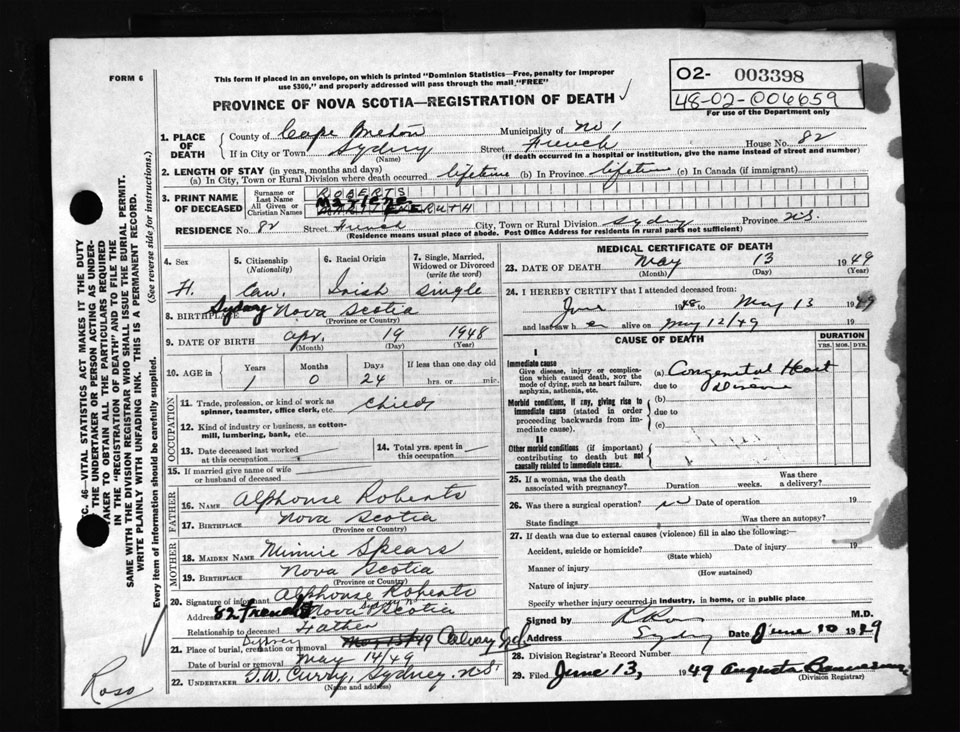 FORM 6
This form if placed in an envelope, on which is printed "Dominion Statistics—Free, penalty for improper
use $300," and properly addressed will pass through the mail "FREE"
O2- 003398
48-02-006659
For use of the Department only
PROVINCE OF NOVA SCOTIA—REGISTRATION OF DEATH
1. PLACE OF DEATH
County of Cape Breton Municipality of No 1
If in City or Town Sydney Street French House No. 82
(Name) (If death occurred in a hospital or institution, give the name instead of street and number)
2. LENGTH OF STAY (in years, months and days)
(a) In City, Town or Rural Division where death occurred lifetime (b) In Province lifetime (c) In Canada (if immigrant)
3. PRINT NAME OF DECEASED
Surname or Last Name ROBERTS
All Given or Christian Names RUTH
RESIDENCE No. 82 Street French City, Town or Rural Division Sydney Province N.S.
(Residence means usual place of abode. Post Office Address for residents in rural parts not sufficient)
4. Sex 5. Citizenship (Nationality) 6. Racial Origin 7. Single, Married, Widowed or Divorced (write the word)
F. Can. Irish Single
8. BIRTHPLACE Sydney Nova Scotia
(Province or Country)
9. DATE OF BIRTH Apr. 19 1948
(Month) (Day) (Year)
10. AGE in Years Months Days If less than one day old
1 0 24 hrs. or min.
OCCUPATION
11. Trade, profession, or kind of work as spinner, teamster, office clerk, etc. Child
12. Kind of industry or business, as cotton-mill, lumbering, bank, etc.
13. Date deceased last worked at this occupation
14. Total yrs. spent in this occupation
15. If married give name of wife or husband of deceased
FATHER
16. NAME Alphonse Roberts
17. BIRTHPLACE Nova Scotia
(Province or Country)
MOTHER
18. MAIDEN NAME Minnie Spears
19. BIRTHPLACE Nova Scotia
(Province or Country)
20. Signature of informant Alphonse Roberts
Address 82 French St. Nova Scotia
Relationship to deceased Father
21. Place of burial, cremation or removal Sydney Calvary
Date of burial or removal May 14/49
22. UNDERTAKER T.W. Curry, Sydney. N.S.
(Name and address)
MEDICAL CERTIFICATE OF DEATH
23. DATE OF DEATH May 13 1949
(Month) (Day) (Year)
24. I HEREBY CERTIFY that I attended deceased from:
June 1948 to May 13 1949
and last saw her alive on May 12/49 19
CAUSE OF DEATH DURATION
YRS. MOS. DYS.
I
Immediate cause
Give disease, injury or complication which caused death, not the mode of dying, such as heart failure, asphyxia, asthenia, etc.
(a) Congenital Heart
due to Disease
Morbid conditions, if any, giving rise to immediate cause (stated in order proceeding backwards from immediate cause).
(b)
due to
(c)
II
Other morbid conditions (if important) contributing to death but not causally related to immediate cause.
25. If a woman, was the death associated with pregnancy? Duration weeks. Was there a delivery?
26. Was there a surgical operation? no Date of operation 19
State findings Was there an autopsy?
27. If death was due to external causes (violence) fill in also the following:—
Accident, suicide or homicide? Date of injury 19
(State which)
Manner of injury
(How sustained)
Nature of injury
Specify whether injury occurred in industry, in home, or in public place
Signed by M.D.
Address Sydney Date June 10 1949
28. Division Registrar's Record Number
29. Filed June 13, 1949 Augusta
(Division Registrar)
C. 46—VITAL STATISTICS ACT MAKES IT THE DUTY
THE UNDERTAKER OR PERSON ACTING AS UNDER-
TAKER TO OBTAIN ALL THE PARTICULARS REQUIRED
IN THE "REGISTRATION OF DEATH" AND TO FILE THE
SAME WITH THE DIVISION REGISTRAR WHO SHALL ISSUE THE BURIAL PERMIT.
WRITE PLAINLY WITH UNFADING INK. THIS IS A PERMANENT RECORD.
Every item of information should be carefully supplied. (See reverse side for instructions.)
Ross